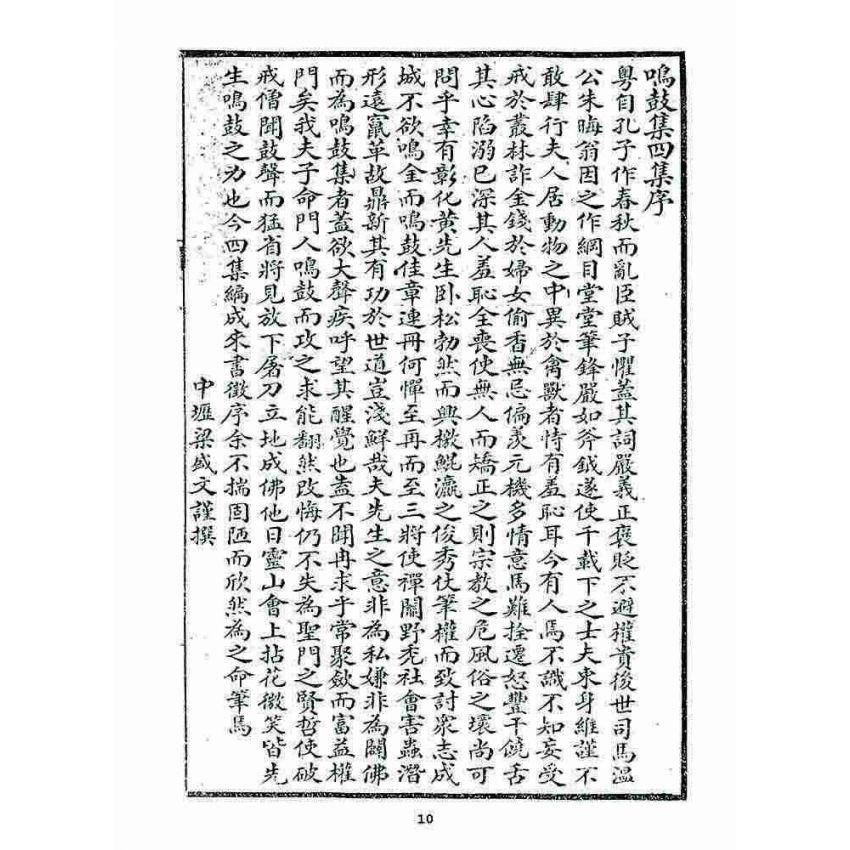 鳴鼓集四集序
粵自孔子作春秋而亂臣賊子懼蓋其詞嚴義正褒貶不避權貴後世司馬溫
公朱晦翁因之作綱目堂堂筆鋒嚴如斧鉞遂使千載下之士夫束身維謹不
敢肆行夫人居動物之中異於禽獸者恃有羞恥耳今有人焉不識不知妄受
戒於叢林詐金錢於婦女偷香無忌偏羨元機多情意馬難拴遷怒豐干饒舌
其心陷溺已深其人羞恥全喪使無人而矯正之則宗教之危風俗之壞尚可
問乎幸有彰化黃先生臥松勃然而興檄鯤瀛之俊秀仗筆權而致討衆志成
城不欲鳴金而鳴鼓佳章連冊何憚至再而至三將使禪關野禿社會害蟲潛
形遠竄革故鼎新其有功於世道豈淺鮮哉夫先生之意非為私嫌非為闢佛
而為鳴鼓集者蓋欲大聲疾呼望其醒覺也盍不聞冉求乎常聚斂而富益權
門矣我夫子命門人鳴鼓而攻之求能翻然改悔仍不失為聖門之賢哲使破
戒僧聞鼓聲而猛省將見放下屠刀立地成佛他日靈山會上拈花微笑皆先
生鳴鼓之力也今四集編成來書徵序余不揣固陋而欣然為之命筆焉
中壢梁盛文謹撰
10